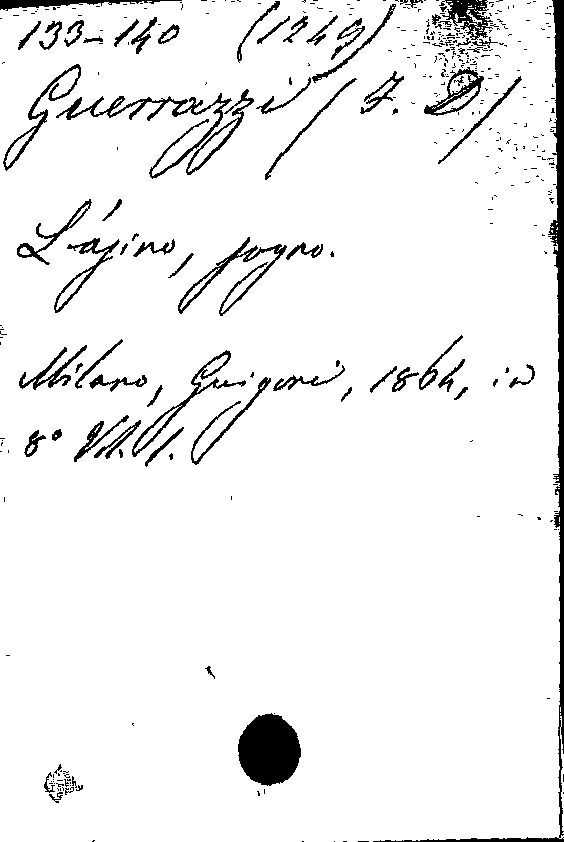 133-140 (1249)
Guerrazzi (F. D)
L'ásino, sogno.
Milano, Guigoni, 1864, in
8° Vol. 1.